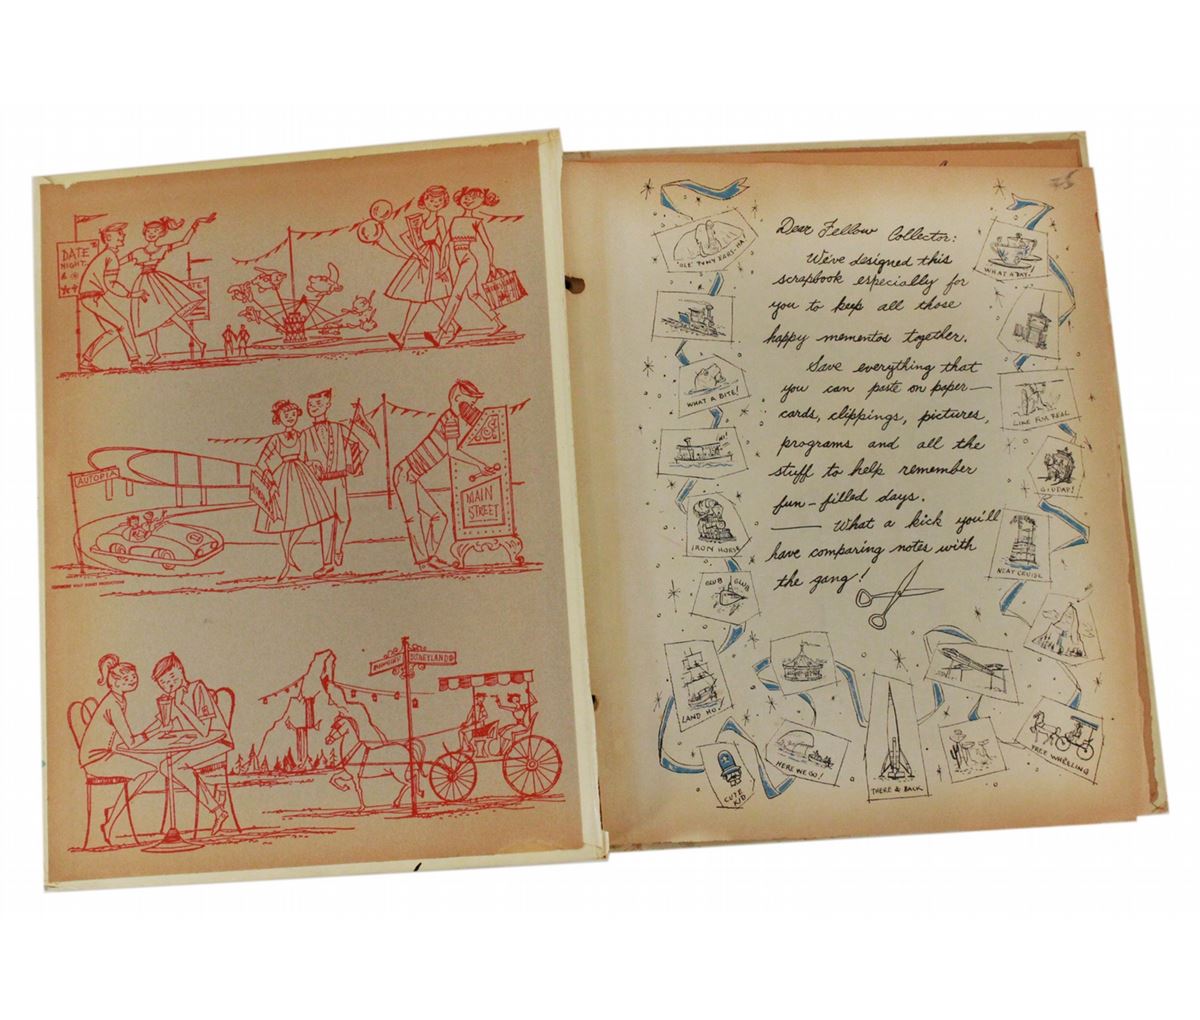 DATE
NIGHT
ATE
DISNEYLAND
AUTOPIA
MAIN
STREET
DISNEYLAND
Dear Fellow Collector:
We've designed this
scrapbook especially for
you to keep all those
happy mementos together.
Save everything that
you can paste on paper—
cards, clippings, pictures,
programs and all the
stuff to help remember
fun-filled days.
— What a kick you'll
have comparing notes with
the gang!
WHAT A BITE!
IRON HORSE
GLUB GLUB
LAND HO!
CUTE
KID
HERE WE GO!
THERE & BACK
FREE WHEELING
WHAT A DAY!
LIKE FOR REAL
NEAT CRUISE